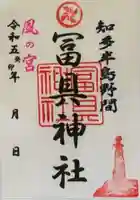 知多半島野間
冨具神社
風の宮
令和五癸卯年
月 日